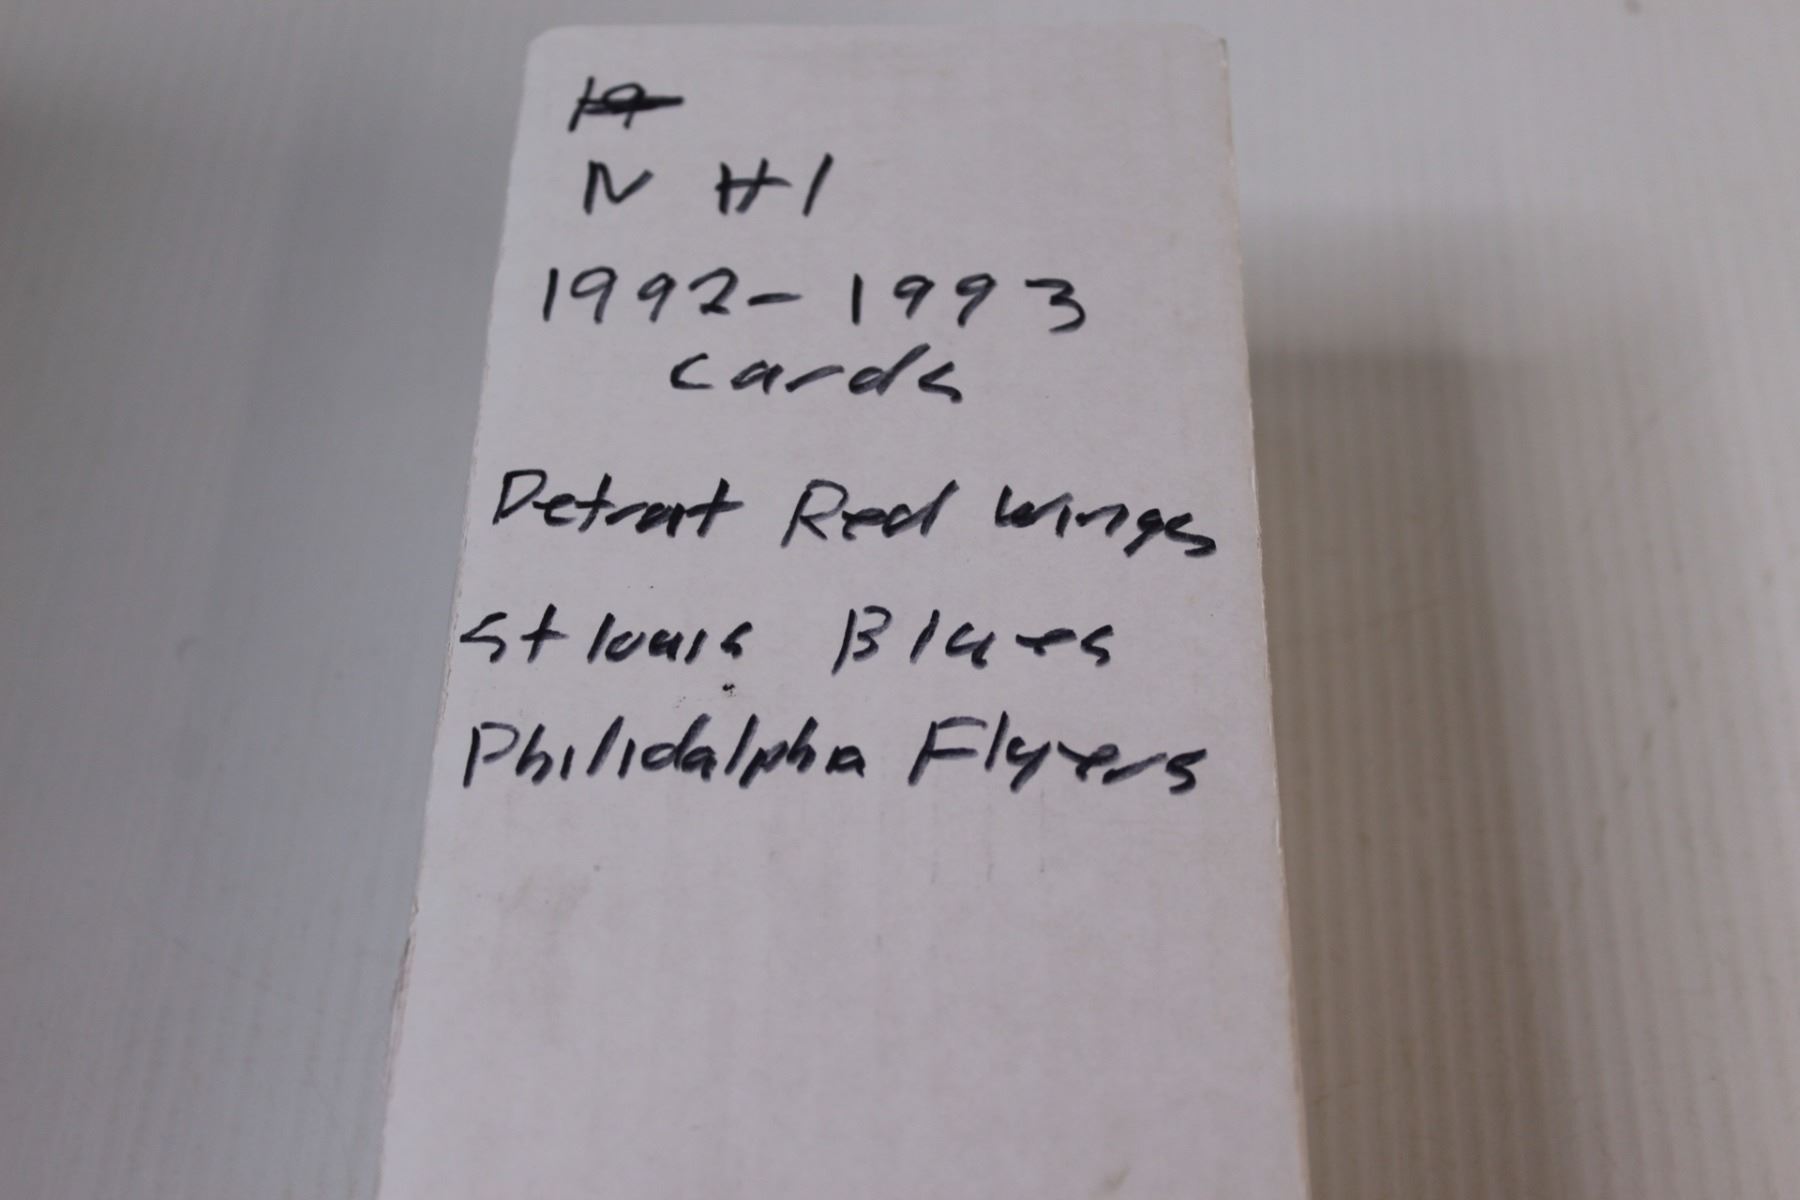 19
N Hl
1992-1993
cards
Detroit Red Wings
St louis Blues
Philidalpha Flyers